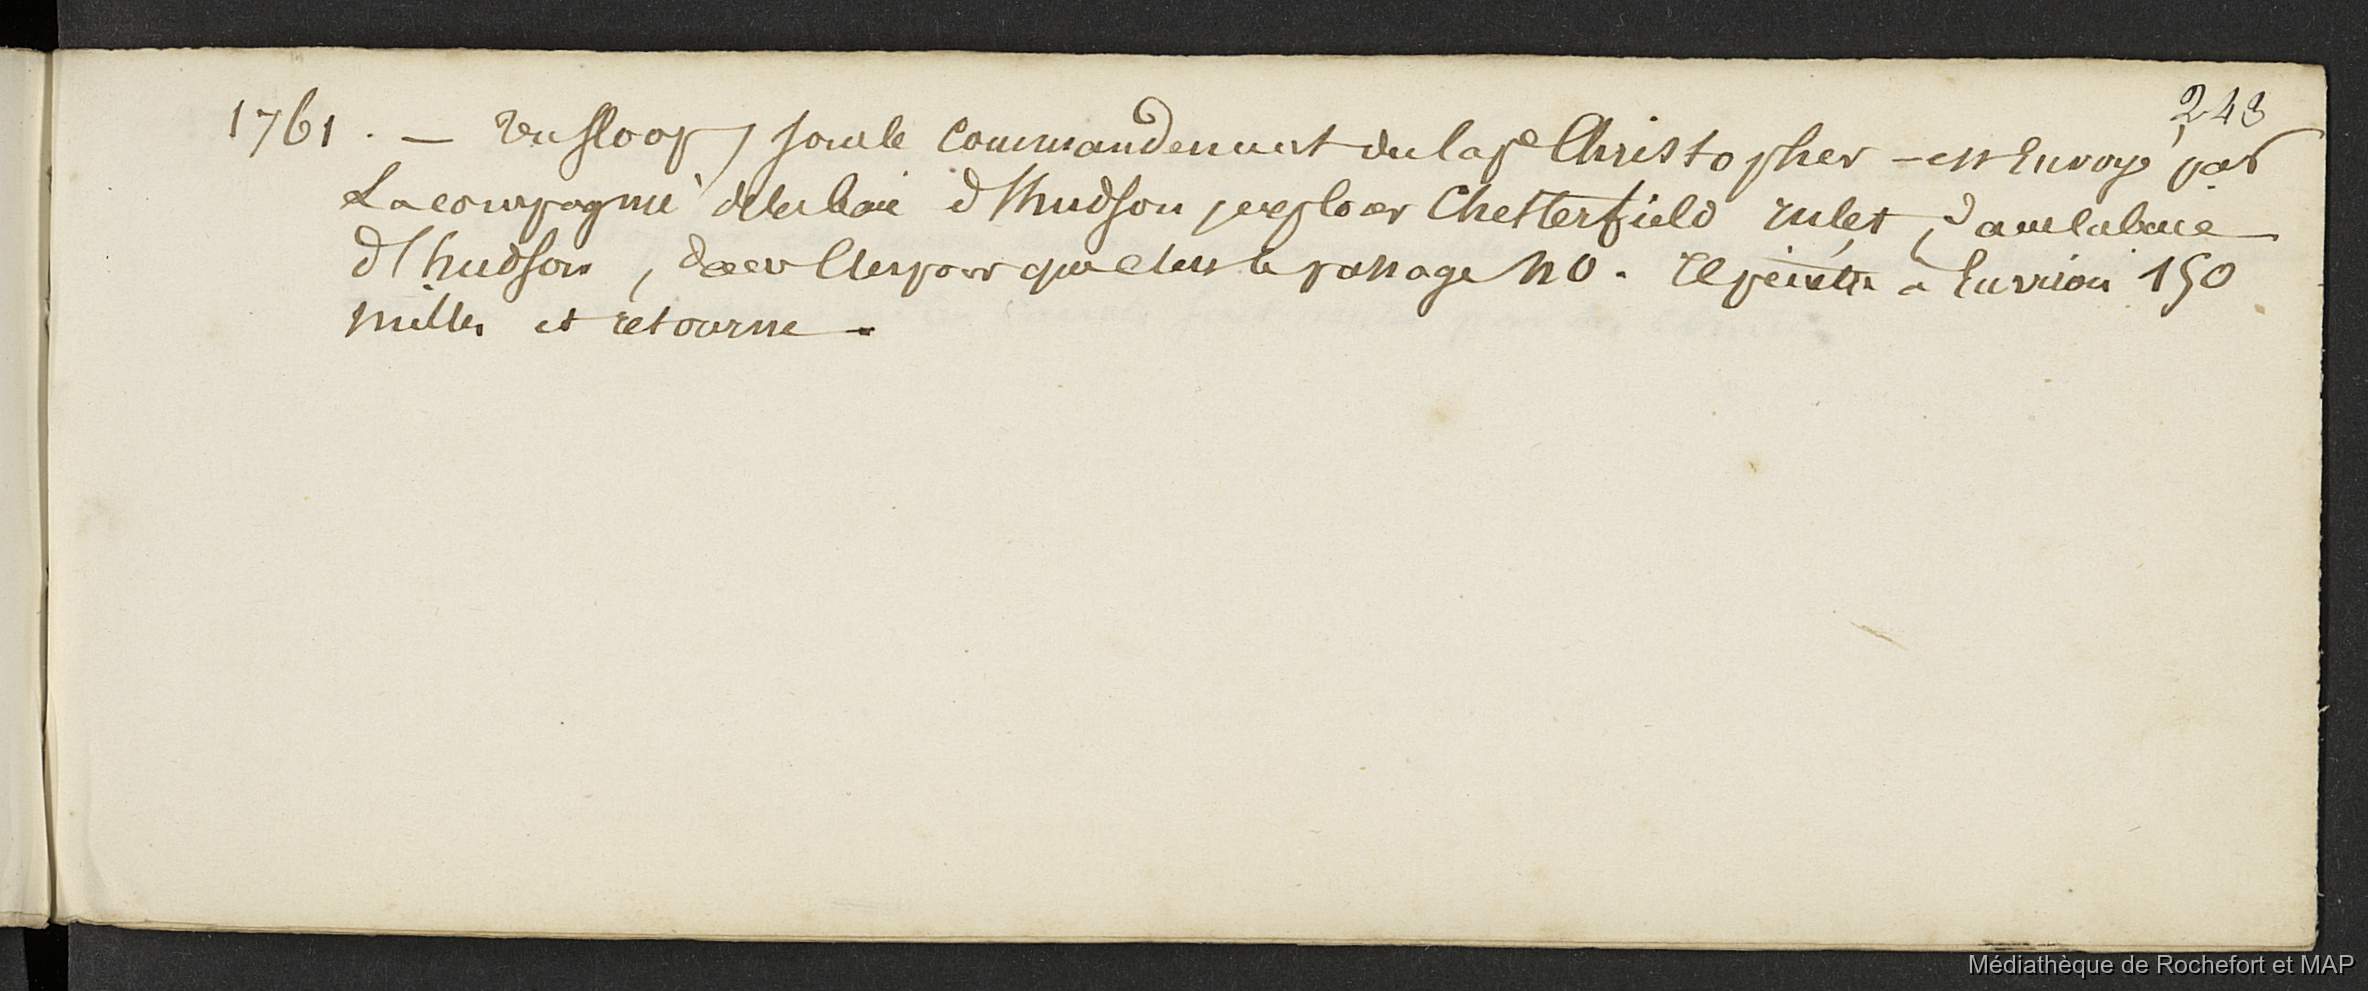 243
1761. — un sloop, sous le commandement du cape Christopher — est envoyé par
La compagnie de la baie d'hudson, explorer Chesterfield inlet, dans la baie
d'hudson, dans l'espoir que c'est le passage NO. Il pénètre a environ 150
milles et retourne.
Médiathèque de Rochefort et MAP